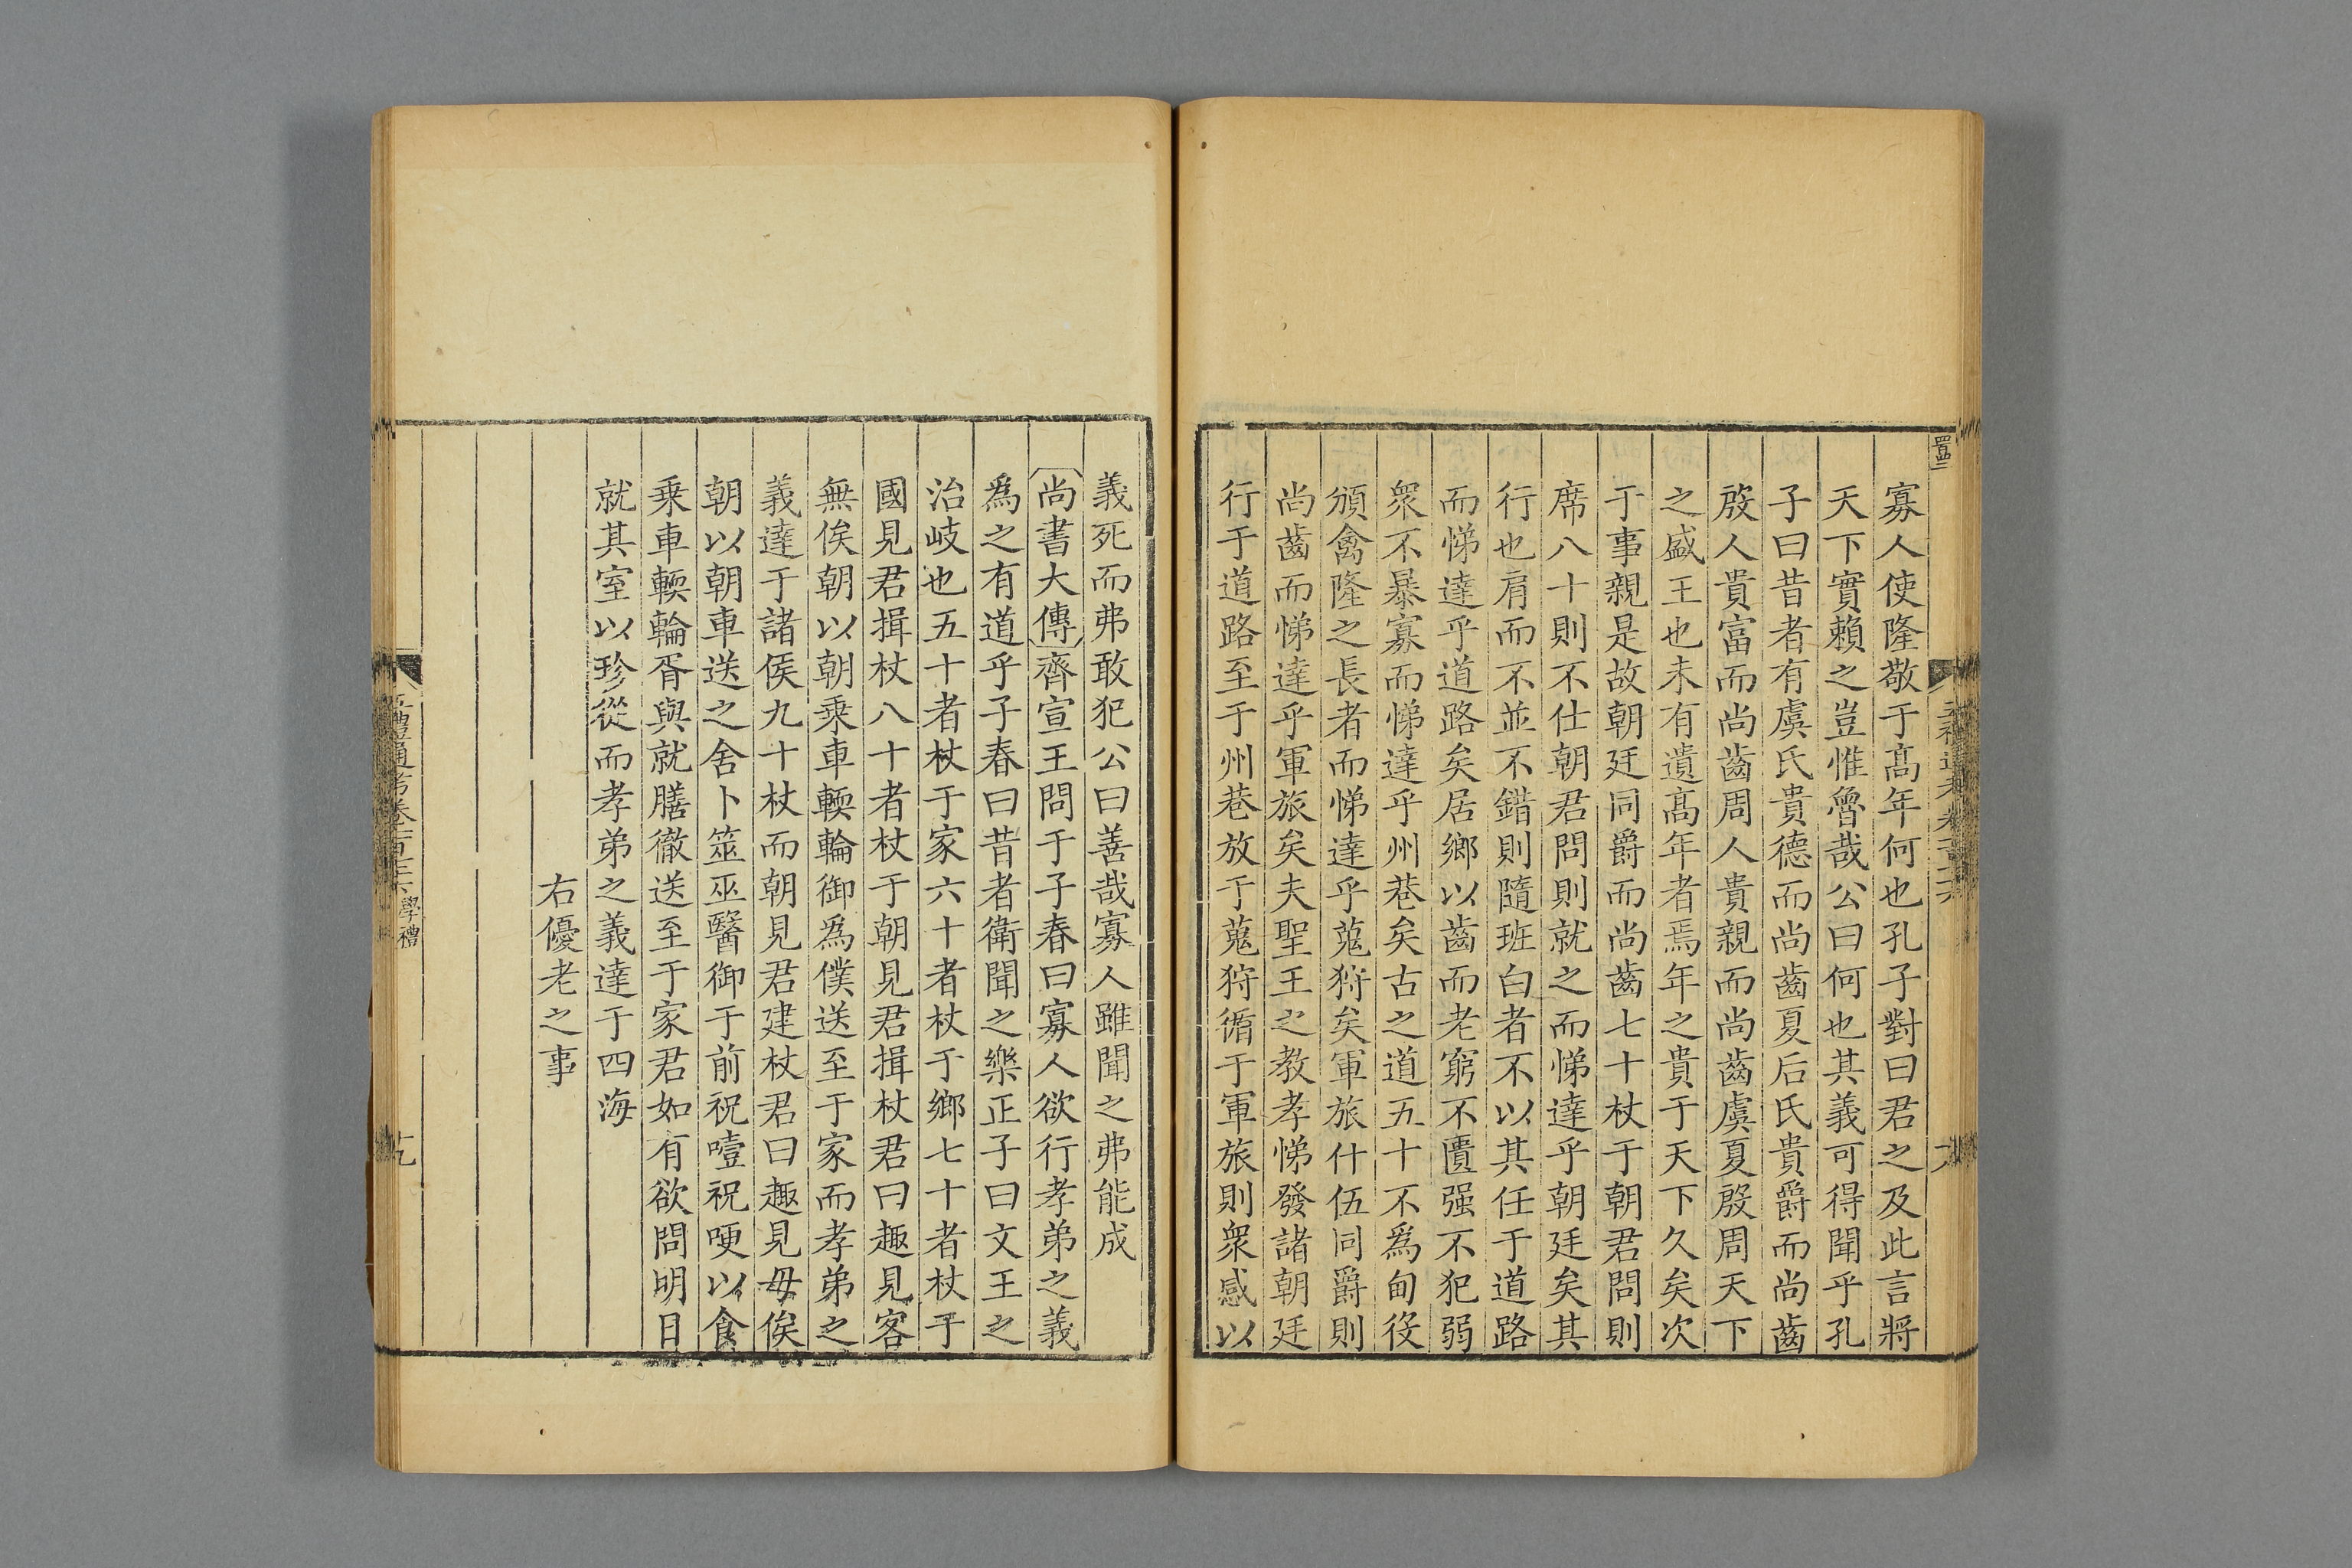 寡人使隆敬于髙年何也孔子對曰君之及此言將
天下實賴之豈惟魯哉公曰何也其義可得聞乎孔
子曰昔者有虞氏貴德而尚齒夏后氏貴爵而尚齒
殷人貴富而尚齒周人貴親而尚齒虞夏殷周天下
之盛王也未有遺髙年者焉年之貴于天下久矣次
于事親是故朝廷同爵而尚齒七十杖于朝君問則
席八十則不仕朝君問則就之而悌達乎朝廷矣其
行也肩而不並不錯則隨班白者不以其任于道路
而悌達乎道路矣居鄉以齒而老窮不匱强不犯弱
衆不暴寡而悌達乎州巷矣古之道五十不爲甸役
頒禽隆之長者而悌達乎蒐狩矣軍旅什伍同爵則
尚齒而悌達乎軍旅矣夫聖王之教孝悌發諸朝廷
行于道路至于州巷放于蒐狩循于軍旅則衆感以
義死而弗敢犯公曰善哉寡人雖聞之弗能成
尚書大傳齊宣王問于子春曰寡人欲行孝弟之義
爲之有道乎子春曰昔者衛聞之樂正子曰文王之
治岐也五十者杖于家六十者杖于鄉七十者杖于
國見君揖杖八十者杖于朝見君揖杖君曰趣見客
無俟朝以朝乗車輭輪御爲僕送至于家而孝弟之
義達于諸侯九十杖而朝見君建杖君曰趣見毋俟
朝以朝車送之舍卜筮巫醫御于前祝噎祝哽以食
乗車輭輪胥與就膳徹送至于家君如有欲問明日
就其室以珍從而孝弟之義達于四海
右優老之事
五禮通考卷一百七十六學禮